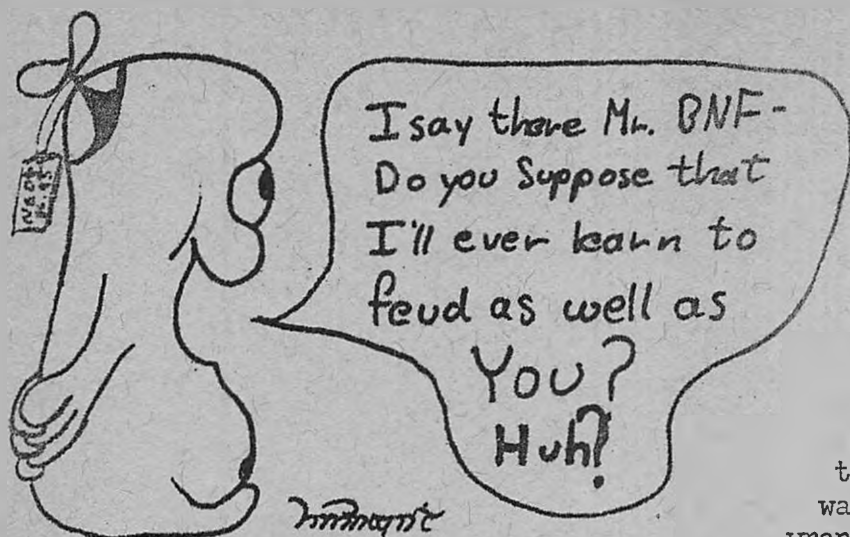 I say there Mr. BNF-
Do you Suppose that
I'll ever learn to
feud as well as
You?
Huh?
t
wa